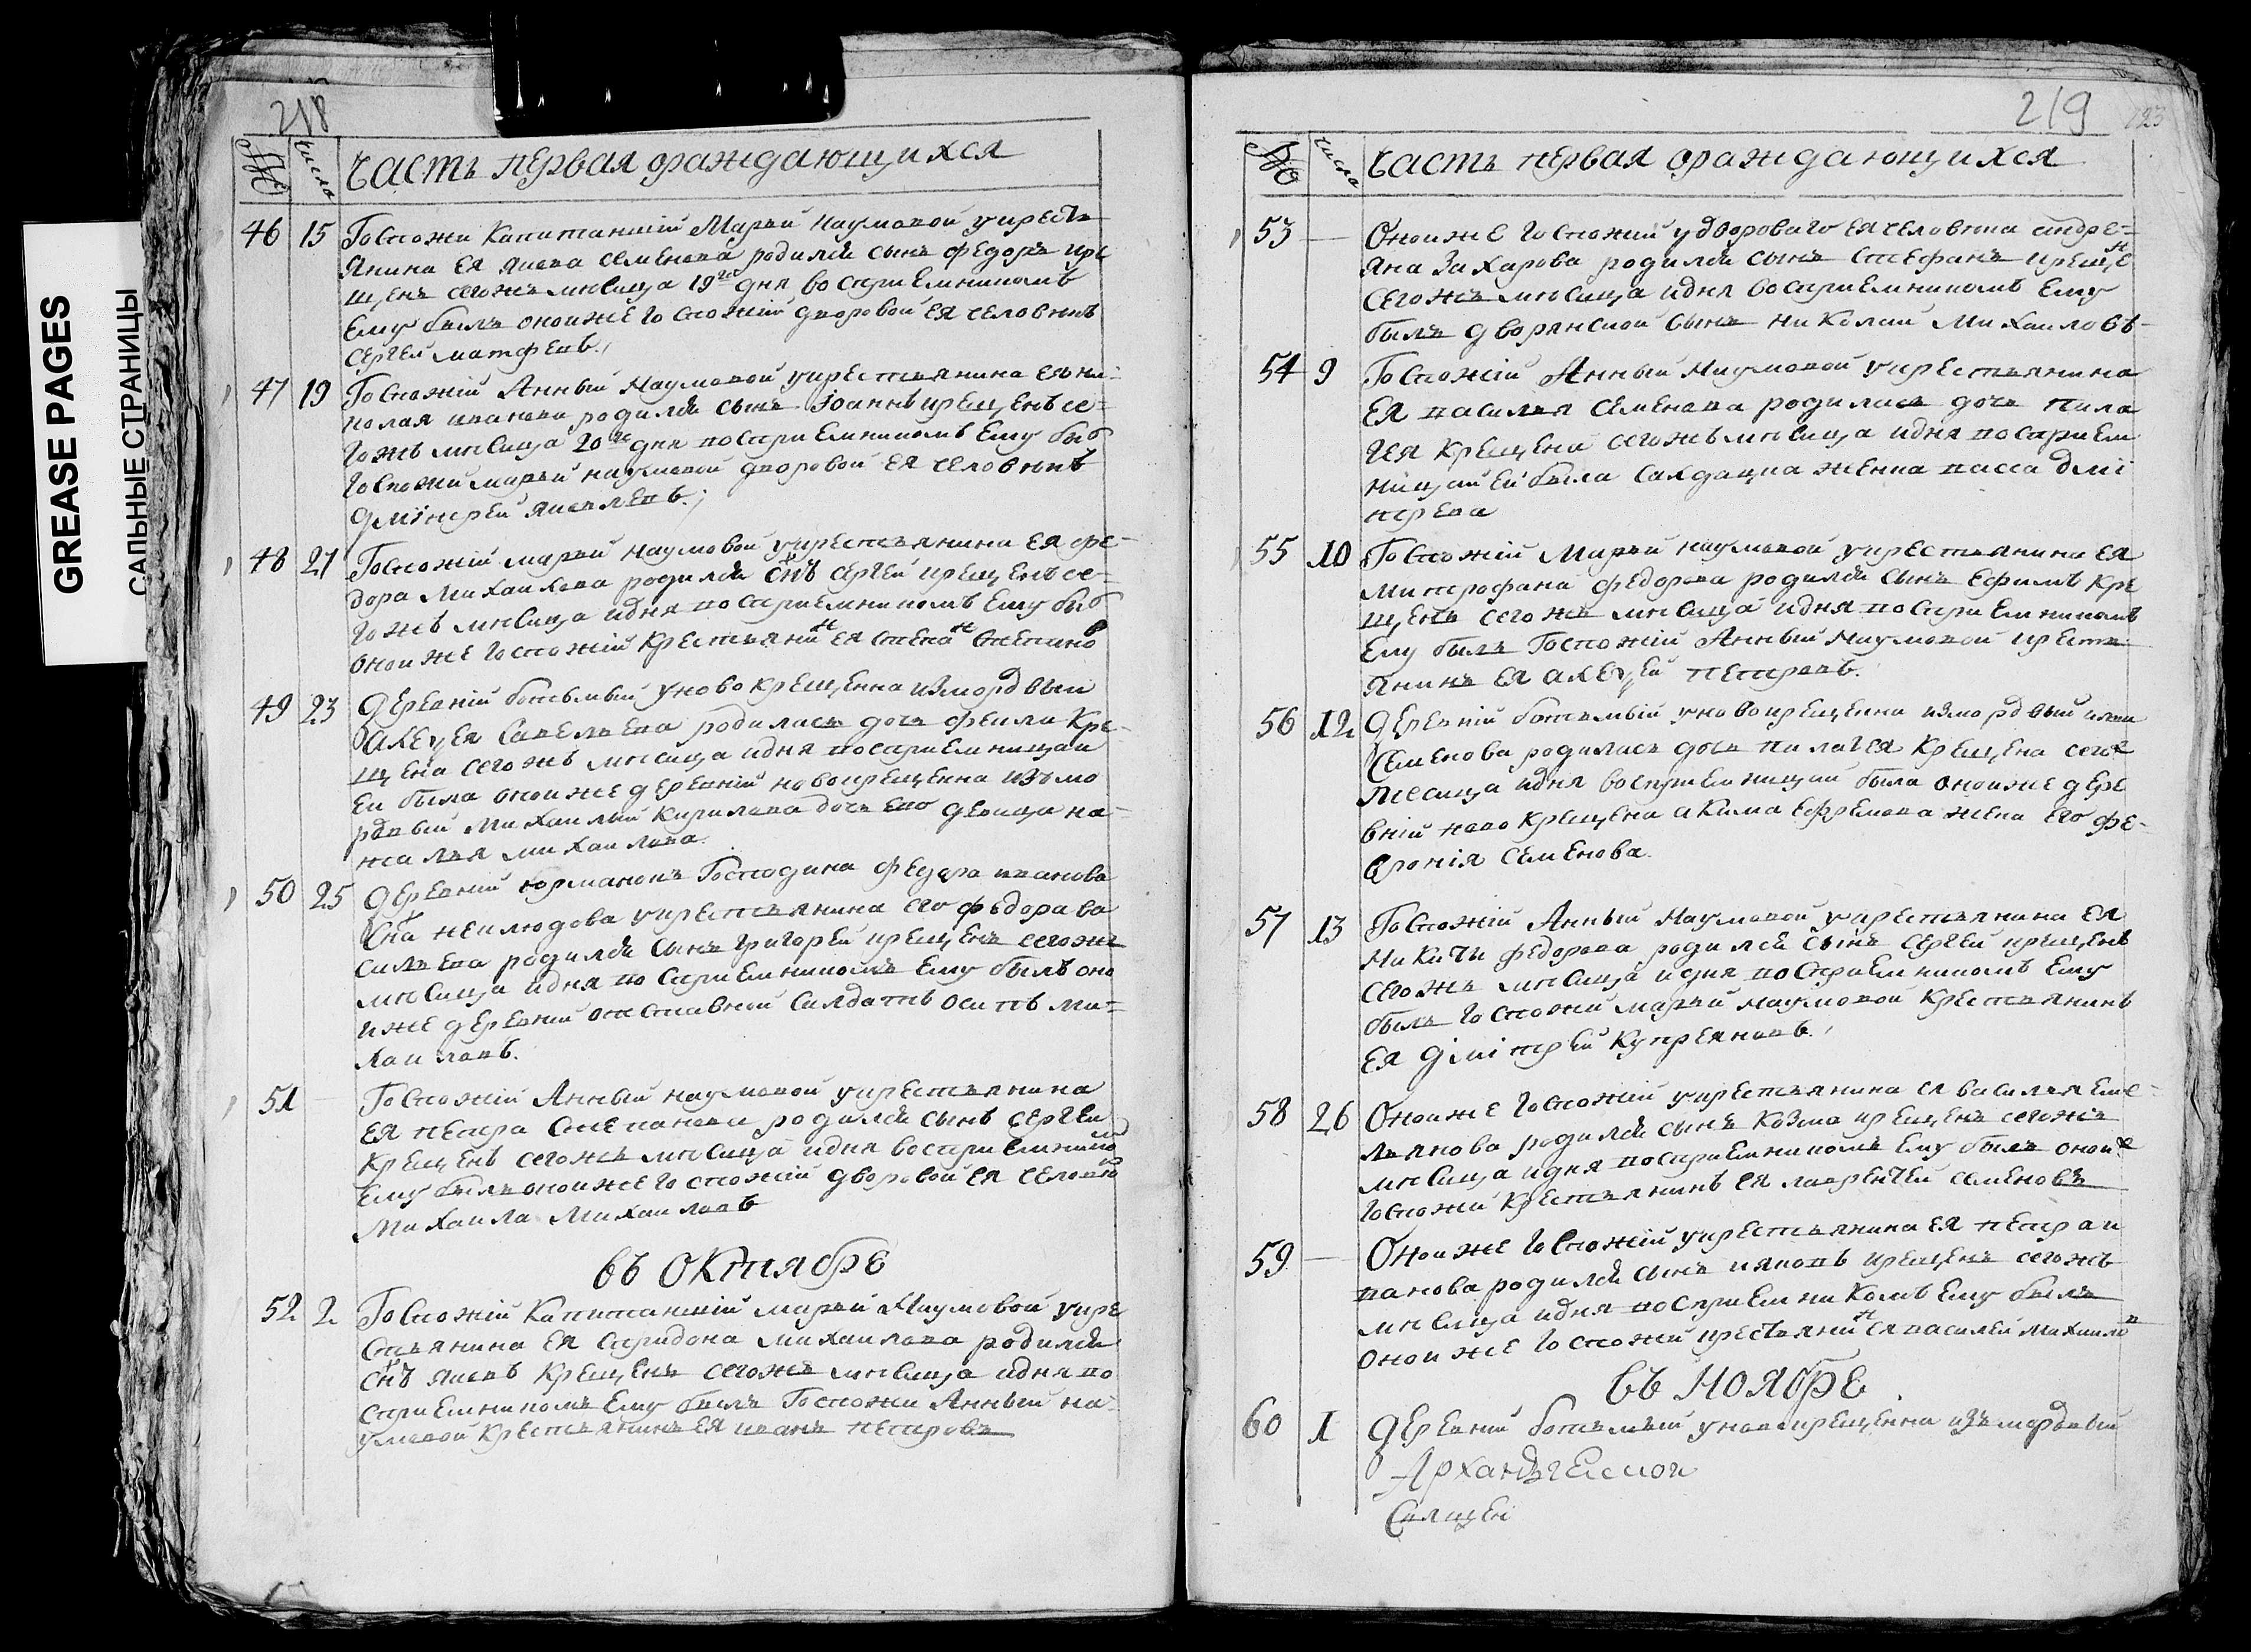 GREASE PAGES
САЛЬНЫЕ СТРАНИЦЫ
218
№ число Часть первая ораждающихся
46 15 Госпожи Капитанши Марьи Наумовой укресть
янина ея Якова Семенова родился сынъ Федоръ кре
щенъ сегожъ мѣсяца 19го дня восприемникомъ
Ему былъ оной же госпожи дворовой ея человѣкъ
Сергей Матфеевъ.
47 19 Госпожи Анны Наумовой укрестьянина ея Ни-
колая Иванова родился сынъ Iоаннъ крещенъ се-
гожъ мѣсяца 20го дня восприемникомъ Ему был
госпожи Марьи Наумовой дворовой ея человѣкъ
Дмiтрей Яковлевъ.
48 21 Госпожи Марьи Наумовой укрестьянина ея Фе-
дора Михаилова родился снъ Сергей крещенъ се-
гожъ мѣсяца идня восприемникомъ Ему был
оной же госпожи крестьянин ея Степан Степанов
49 23 Деревни Ботьмы уновокрещенна измордвы
Алексея Савельева родилась дочь Фекла кре-
щена сегожъ мѣсяца идня восприемницаи
Ей была оной же деревни новокрещенна изъмо
рдвы Михаилы Кирилова дочь ево девица На-
талья Михаилова.
50 25 Деревни Господина Федора Иванова
сна Неплюдова укрестьянина его Федора Ва
сильева родился сынъ Григорей крещенъ сегожъ
мѣсяца идня восприемникомъ Ему былъ оно
иже деревни отставной салдатъ Осипъ Ми-
хаиловъ.
51 — Госпожи Анны Наумовой укрестьянина
ея Петра Степанова родился сынъ Сергей
крещенъ сегожъ мѣсяца идня восприемником
Ему былъ оной же госпожи дворовой ея человѣк
Михаила Михаиловъ
въ Октябре
52 2 Госпожи Капитанши Марьи Наумовой укре
стьянина ея Спиридона Михаилова родился
снъ Яковъ крещенъ сегожъ мѣсяца идня во
сприемникомъ Ему былъ Госпожи Анны На-
умовой крестьянинъ ея Иванъ Петровъ
219
123
№ число Часть первая ораждающихся
53 — Оной же госпожи удвороваго ея человѣка Андре-
яна Захарова родился сынъ Стефанъ крещен
сегожъ мѣсяца идня восприемникомъ Ему
былъ дворянской сынъ Николай Михаиловъ
54 9 Госпожи Анны Наумовой укрестьянина
ея Василья Семенова родилась дочь Пила
гея крещена сегожъ мѣсяца идня восприем
ницаи Ей была салдацка женка Васса Дмi
трева
55 10 Госпожи Марьи Наумовой укрестьянина ея
Митрофана Федорова родился сынъ Ефимъ кре
щенъ сегожъ мѣсяца идня восприемникомъ
Ему былъ Госпожи Анны Наумовой кресть
янинъ ея Алексей Петровъ.
56 12 Деревни Ботьмы уновокрещенна измордвы
Семенова родилась дочь Пилагея крещена сегож
месяца идня восприемницаи была оной же дере
вни новокрещена Акима Ефремова жена его Фе-
вронiя Семенова.
57 13 Госпожи Анны Наумовой укрестьянина ея
Никиты Федорова родился сынъ Сергей крещенъ
сегожъ мѣсяца идня восприемникомъ Ему
былъ госпожи Марьи Наумовой крестьянинъ
ея Дiмiтрей Купреяновъ.
58 26 Оной же госпожи укрестьянина ея Василья Еме-
льянова родился сынъ Козма крещенъ сегожъ
мѣсяца идня восприемникомъ Ему былъ оной ж
госпожи крестьянинъ ея Лаврентей Семеновъ
59 — Оной же госпожи укрестьянина ея Петра И
ванова родился сынъ Иаковъ крещенъ сегожъ
мѣсяца идня восприемникомъ Ему былъ
оной же госпожи крестьянин ея Василей Михаилов
въ Ноябре
60 1 Деревни Ботьмы уновокрещенна изъмордвы
Архангелской
Священ